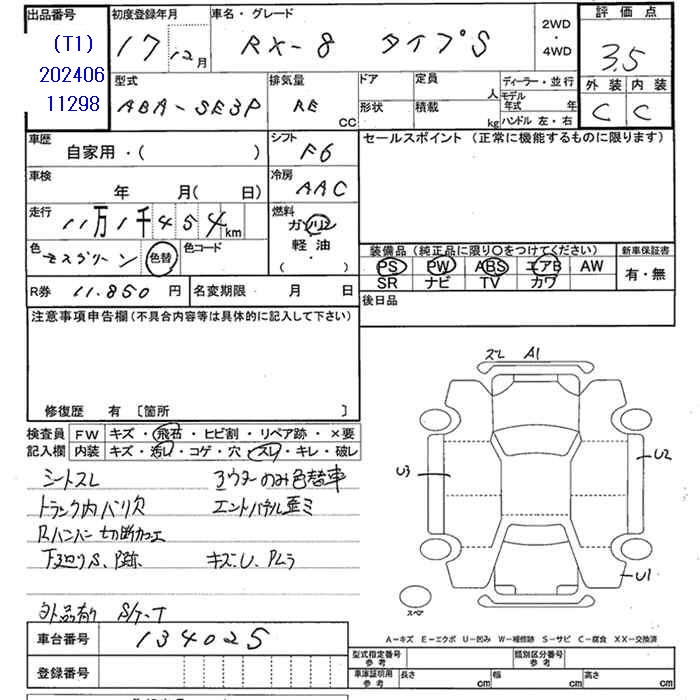 出品番号
(T1)
202406
11298
初度登録年月
17 12月
車名・グレード
RX-8 タイプS
2WD
・
4WD
評価点
3.5
外装 内装
C C
型式
ABA-SE3P
排気量
RE
CC
ドア
形状
定員
人
積載
kg
ディーラー・並行
モデル
年式 年
ハンドル 左・右
車歴
自家用・( )
シフト
F6
車検
年 月( 日)
冷房
AAC
走行
11万1千454km
燃料
ガソリン
軽油
( ・ )
色
モスグリーン
色替
色コード
R券 11.850 円
名変期限 月 日
セールスポイント (正常に機能するものに限ります)
装備品 (純正品に限り〇をつけてください)
PS PW ABS エアB AW
SR ナビ TV カワ
新車保証書
有・無
後日品
注意事項申告欄(不具合内容等は具体的に記入して下さい)
修復歴 有 [箇所 ]
検査員
記入欄
FW キズ・飛石・ヒビ割・リペア跡・×要
内装 キズ・汚レ・コゲ・穴・スレ・キレ・破レ
シートスレ アウターのみ色替車
トランク内バリ欠
Rバンパー切断加工
下廻りS、P跡 キズ、U、Pムラ
外品有り S/ケ-T
車台番号 134025
登録番号
スレ A1
U3
U2
U1
スペア
A-キズ E-エクボ U-凹み W-補修跡 S-サビ C-腐食 XX-交換済
型式指定番号
参考
類別区分番号
参考
車庫証明用
参考
長さ cm
幅 cm
高さ cm